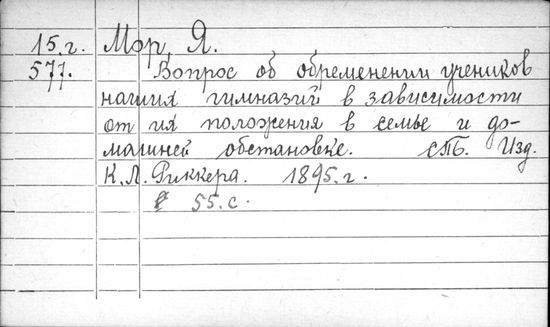 15.г. Мор, Я.
577. Вопрос об обременении учеников
наших гимназий в зависимости
от их положения в семье и до-
машней обстановке. СПБ. Изд.
К.Л. Риккера. 1895.г.
55.с.